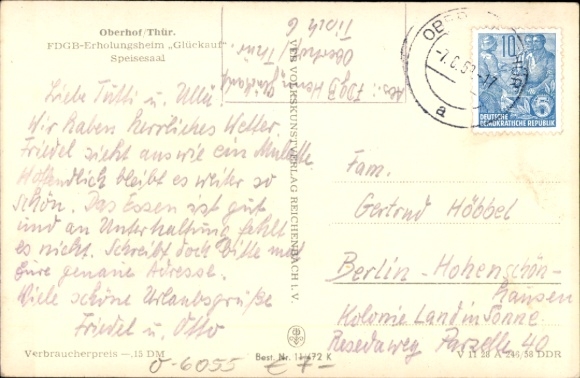 Oberhof/Thür.
FDGB-Erholungsheim „Glückauf“
Speisesaal
Liebe Tutti u. Ulli
Wir haben herrliches Wetter.
Friedel sieht aus wie ein Mulatte
Hoffendlich bleibt es weiter so
schön. Das Essen ist gut
und an Unterhaltung fehlt
es nicht. Schreibt doch bitte mal
Eure genaue Adresse.
Viele schöne Urlaubsgrüße
Friedel u. Otto
Verbraucherpreis —,15 DM
Abs.: FDGB Heim Glückauf
Oberhof/Thür.
Tisch 6
VEB VOLKSKUNSTVERLAG REICHENBACH I. V.
a
10
DEUTSCHE
DEMOKRATISCHE REPUBLIK
Fam.
Gertrud Höbbel
Berlin-Hohenschön-
hausen
Kolonie Land in Sonne
Resedaweg Parzelle 40
Best. Nr. 11/472 K
V 11 28 A 244/58 DDR
0-6055 € 7-